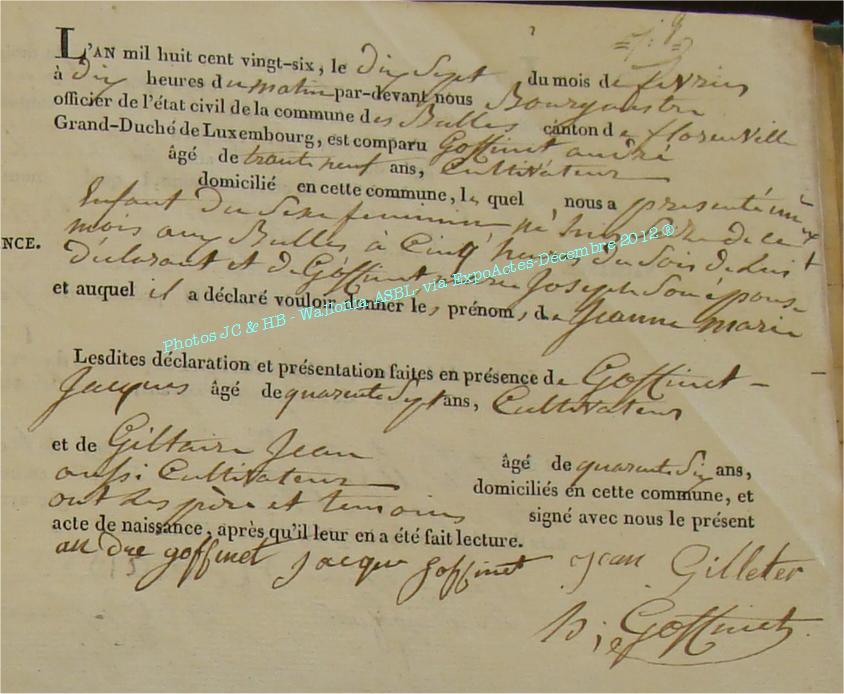 L'AN mil huit cent vingt-six, le dix Sept du mois de fevrier
à dix heures du matin par-devant nous Bourgmestre
officier de l'état civil de la commune des Bulles canton de florenville
Grand-Duché de Luxembourg, est comparu Goffinet andré
âgé de trante neuf ans, Cultivateur
domicilié en cette commune, le quel nous a presenté un
Enfant du Sexe feminin né hier Seize de ce
NCE.
mois aux Bulles à Cinq heures du Soir de lui
déclarant et de Goffinet marie Joseph Son épouse
et auquel il a déclaré vouloir donner les prénoms de Jeanne marie
Photos JC & HB - Wallonia ASBL- via ExpoActes-Décembre 2012 ®
Lesdites déclaration et présentation faites en présence de Goffinet
Jacques âgé de quarente Sept ans, Cultivateur
et de Giltaire Jean âgé de quarente Six ans,
aussi Cultivateur domiciliés en cette commune, et
ont les père et temoins signé avec nous le présent
acte de naissance, après qu'il leur en a été fait lecture.
andre goffinet Jacque goffinet Jean Gilleter
Goffinet